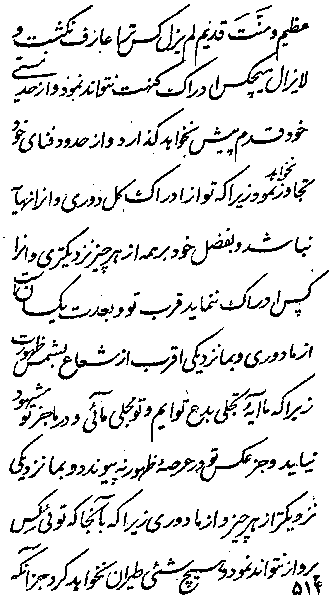 عظیم و منّت قدیم لم یزال کس ترا عارف نگشت و
لایزال هیچکس ادراک کنهت نتواند نمود و از حدّ هستی
خود قدم پیش نخواهد گذارد و از حدود فنای خود
تجاوز نخواهد نمود زیرا که تو از ادراک کل دوری و از انهیا
نباشد و بفضل خود بر همه از هر چیز نزدیکتری و از ا
کس ادراک ننماید قرب تو و بعدت یکسان
از ما دوری و بما نزدیکی اقرب از شعاع بشمس ظهورت
زیرا که ما آیهٔ تجلی بدع توایم و تو مجلی مائی و در ما جز تو مشهود
نیاید و جز عکس تو در عرصهٔ ظهور نه پیوندد و بما نزدیکی
نزدیکتر از هر چیز و از ما دوری زیرا که بآنجا که توئی کس
پرواز نتواند نمود و هیچ شئی طیران نخواهد کرد جز آنکه
۵۱۴